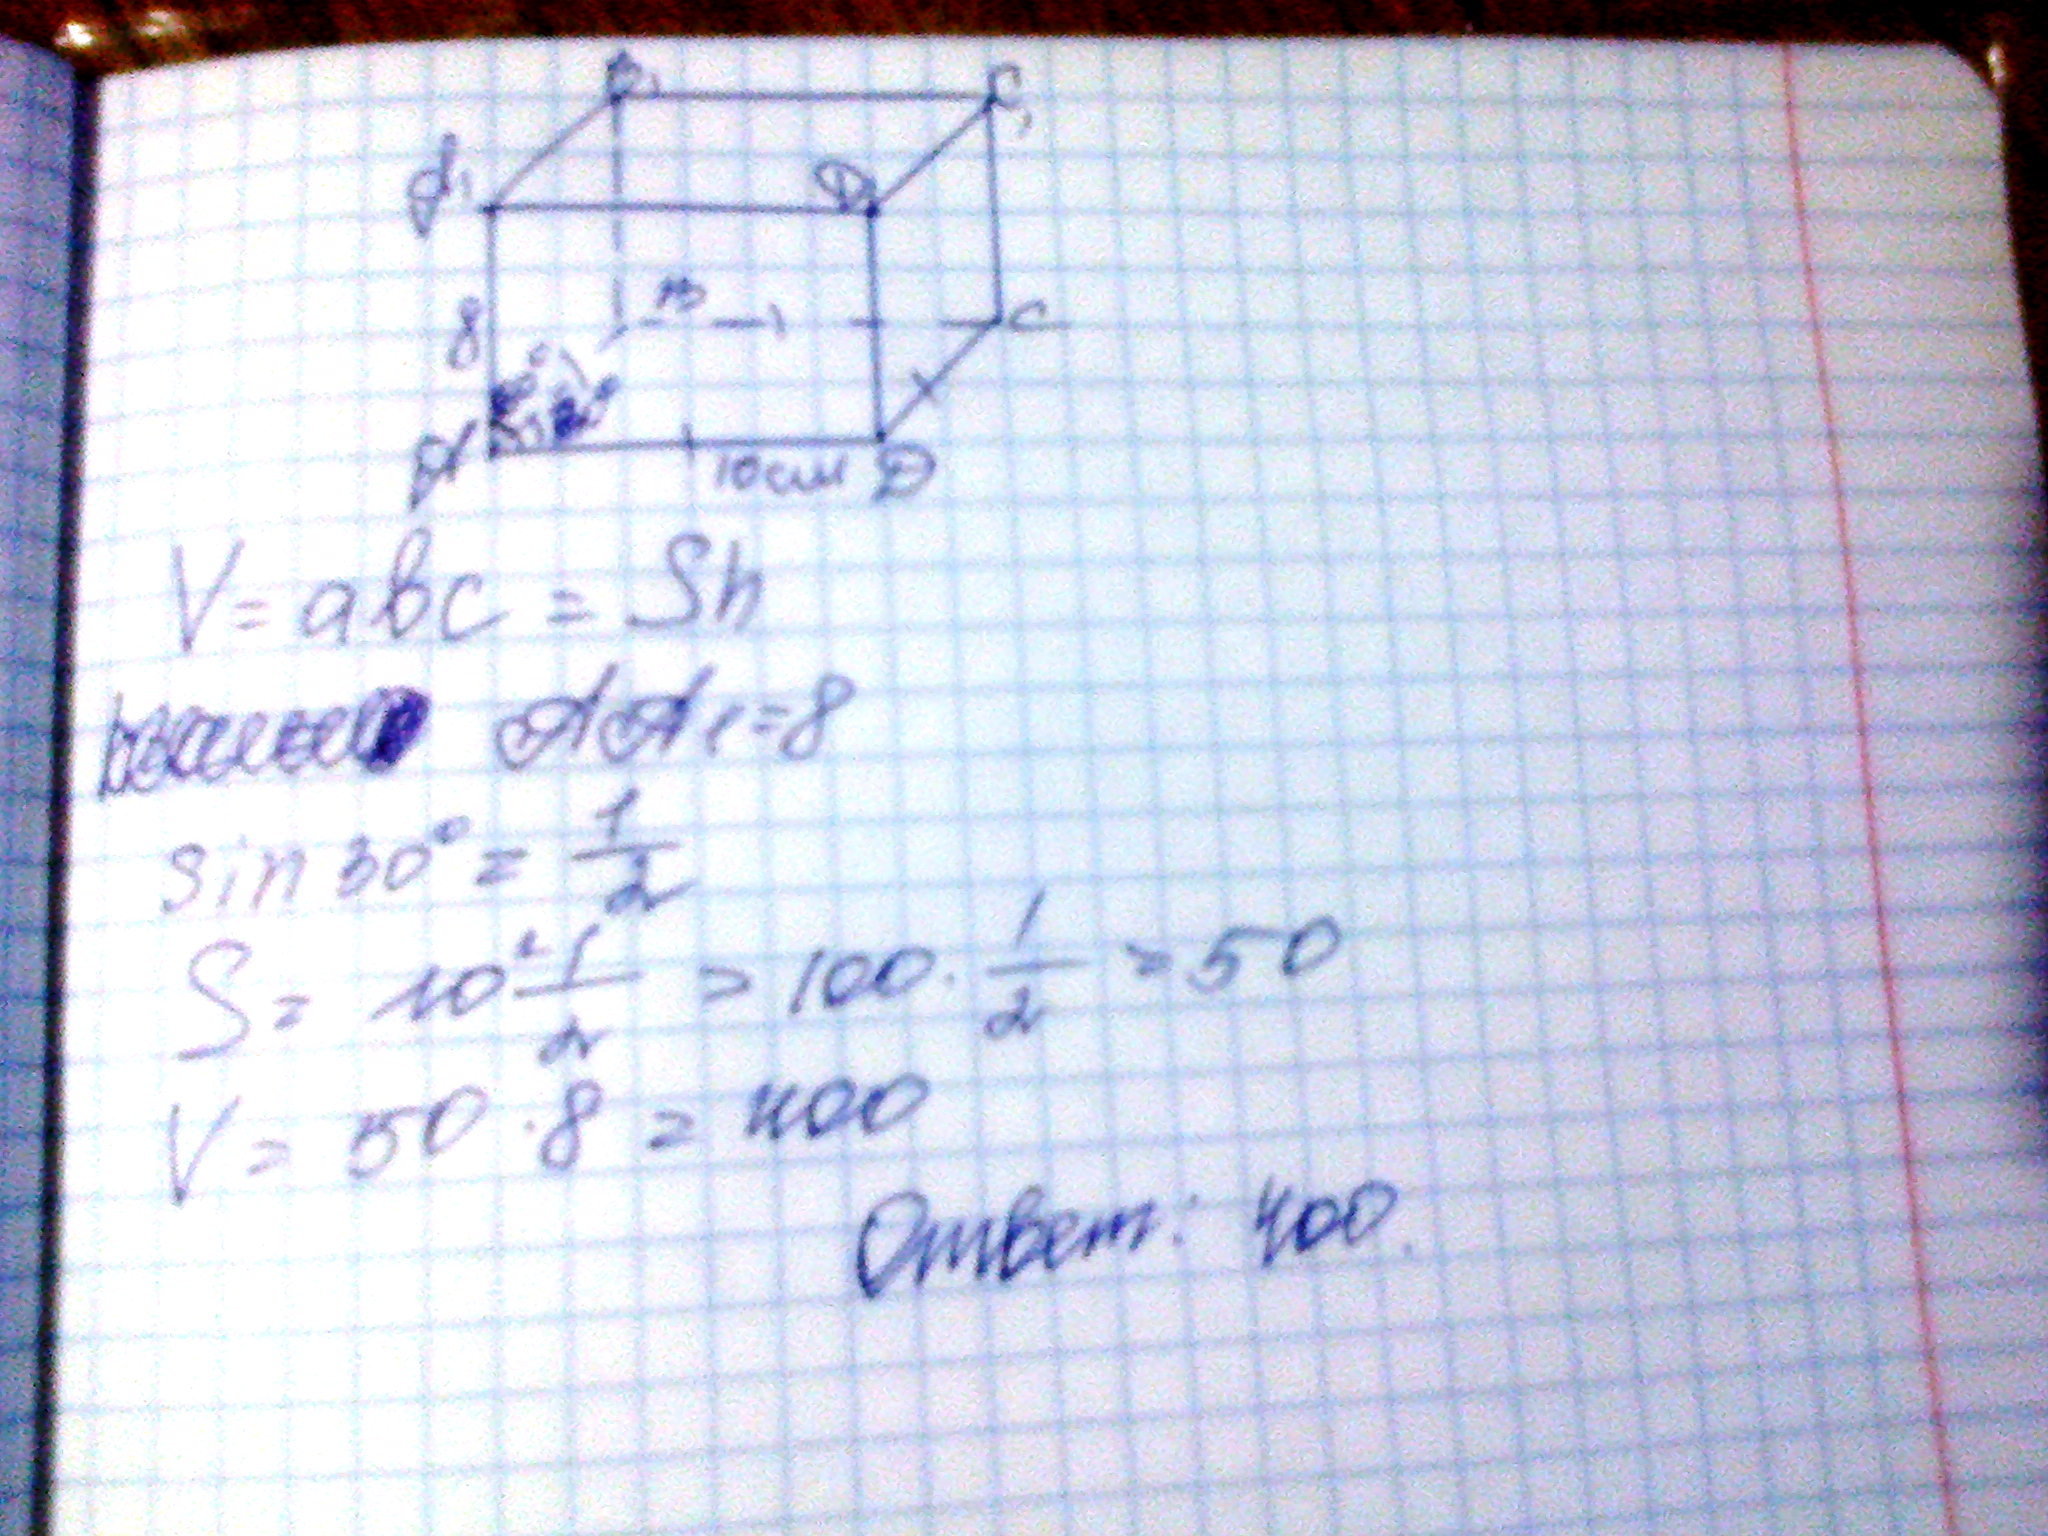 B₁ C₁
A₁ D₁
8 B C
30°
A 10 см D
V = abc = Sh
AA₁ = 8
sin 30° = 1/2
S = 10² · 1/2 = 100 · 1/2 = 50
V = 50 · 8 = 400
Ответ: 400.